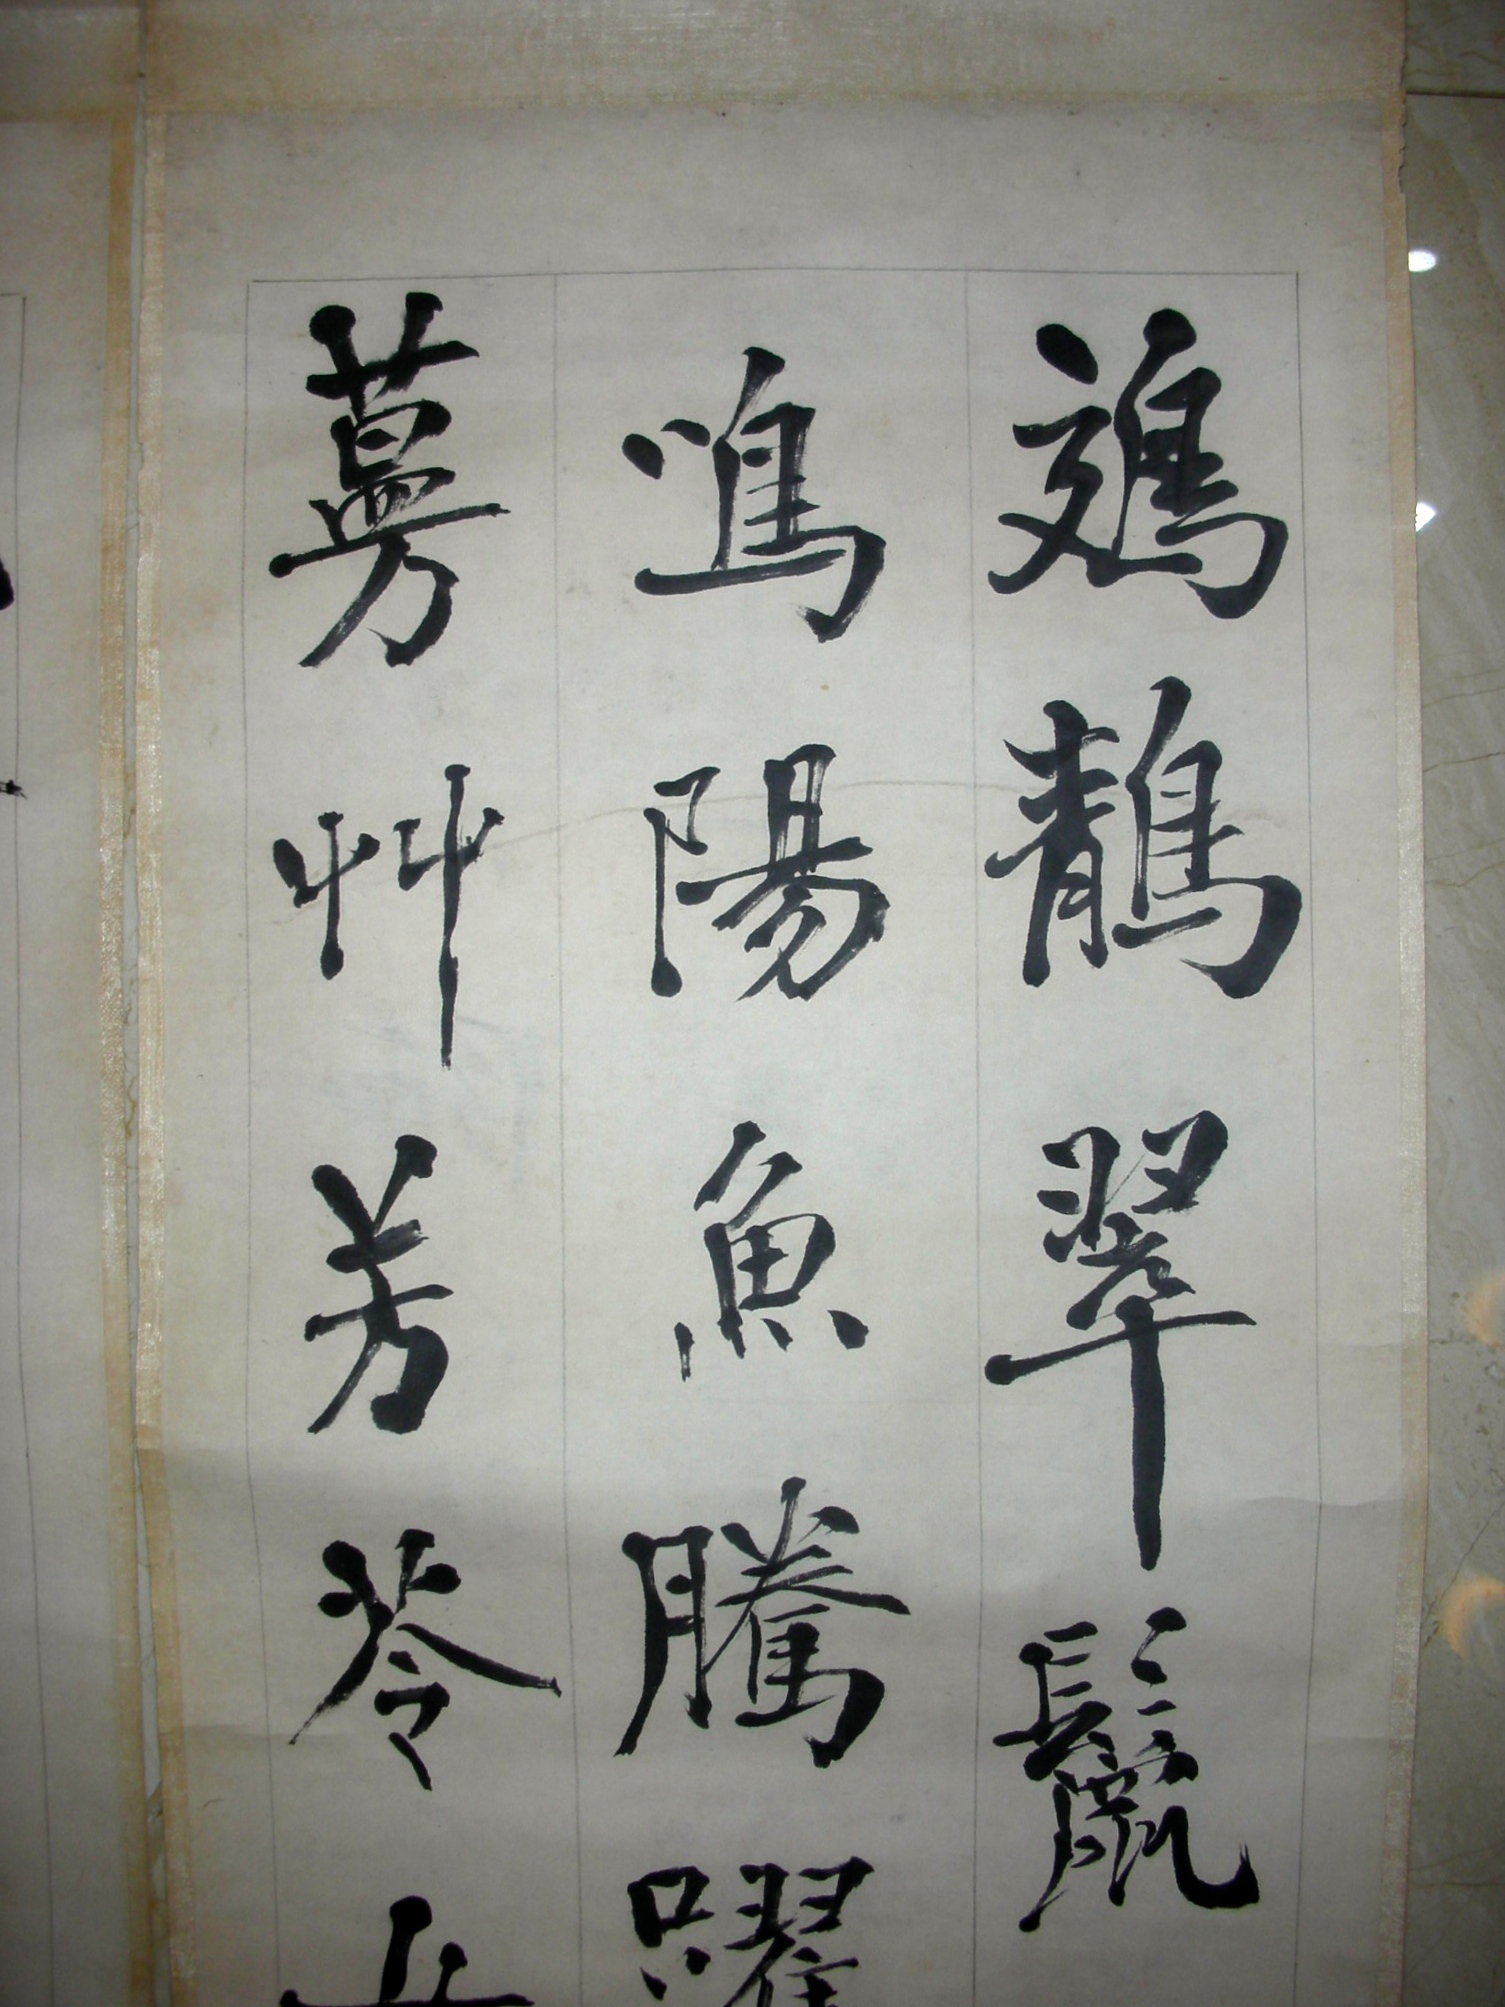 鵁鶄翠鬣
鳴陽魚騰躍
蔓艸芳苓女